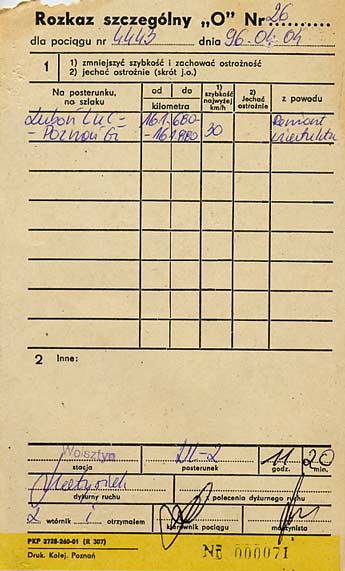 Rozkaz szczególny „O" Nr 26
dla pociągu nr 4445 dnia 96.04.04
1 1) zmniejszyć szybkość i zachować ostrożność
2) jechać ostrożnie (skrót j.o.)
Na posterunku, na szlaku
od do
kilometra
1) szybkość najwyżej km/h
2) Jechać ostrożnie
z powodu
Luboń
- Poznań Gł
161.680-
-161.980
30
Remont
wiaduktu
2 Inne:
Wolsztyn
stacja
posterunek
11 godz. 20 min.
dyżurny ruchu
z polecenia dyżurnego ruchu
wtórnik otrzymałem
kierownik pociągu
maszynista
PKP 2728-260-01 (R 307)
Druk. Kolej. Poznań
Nr 000071